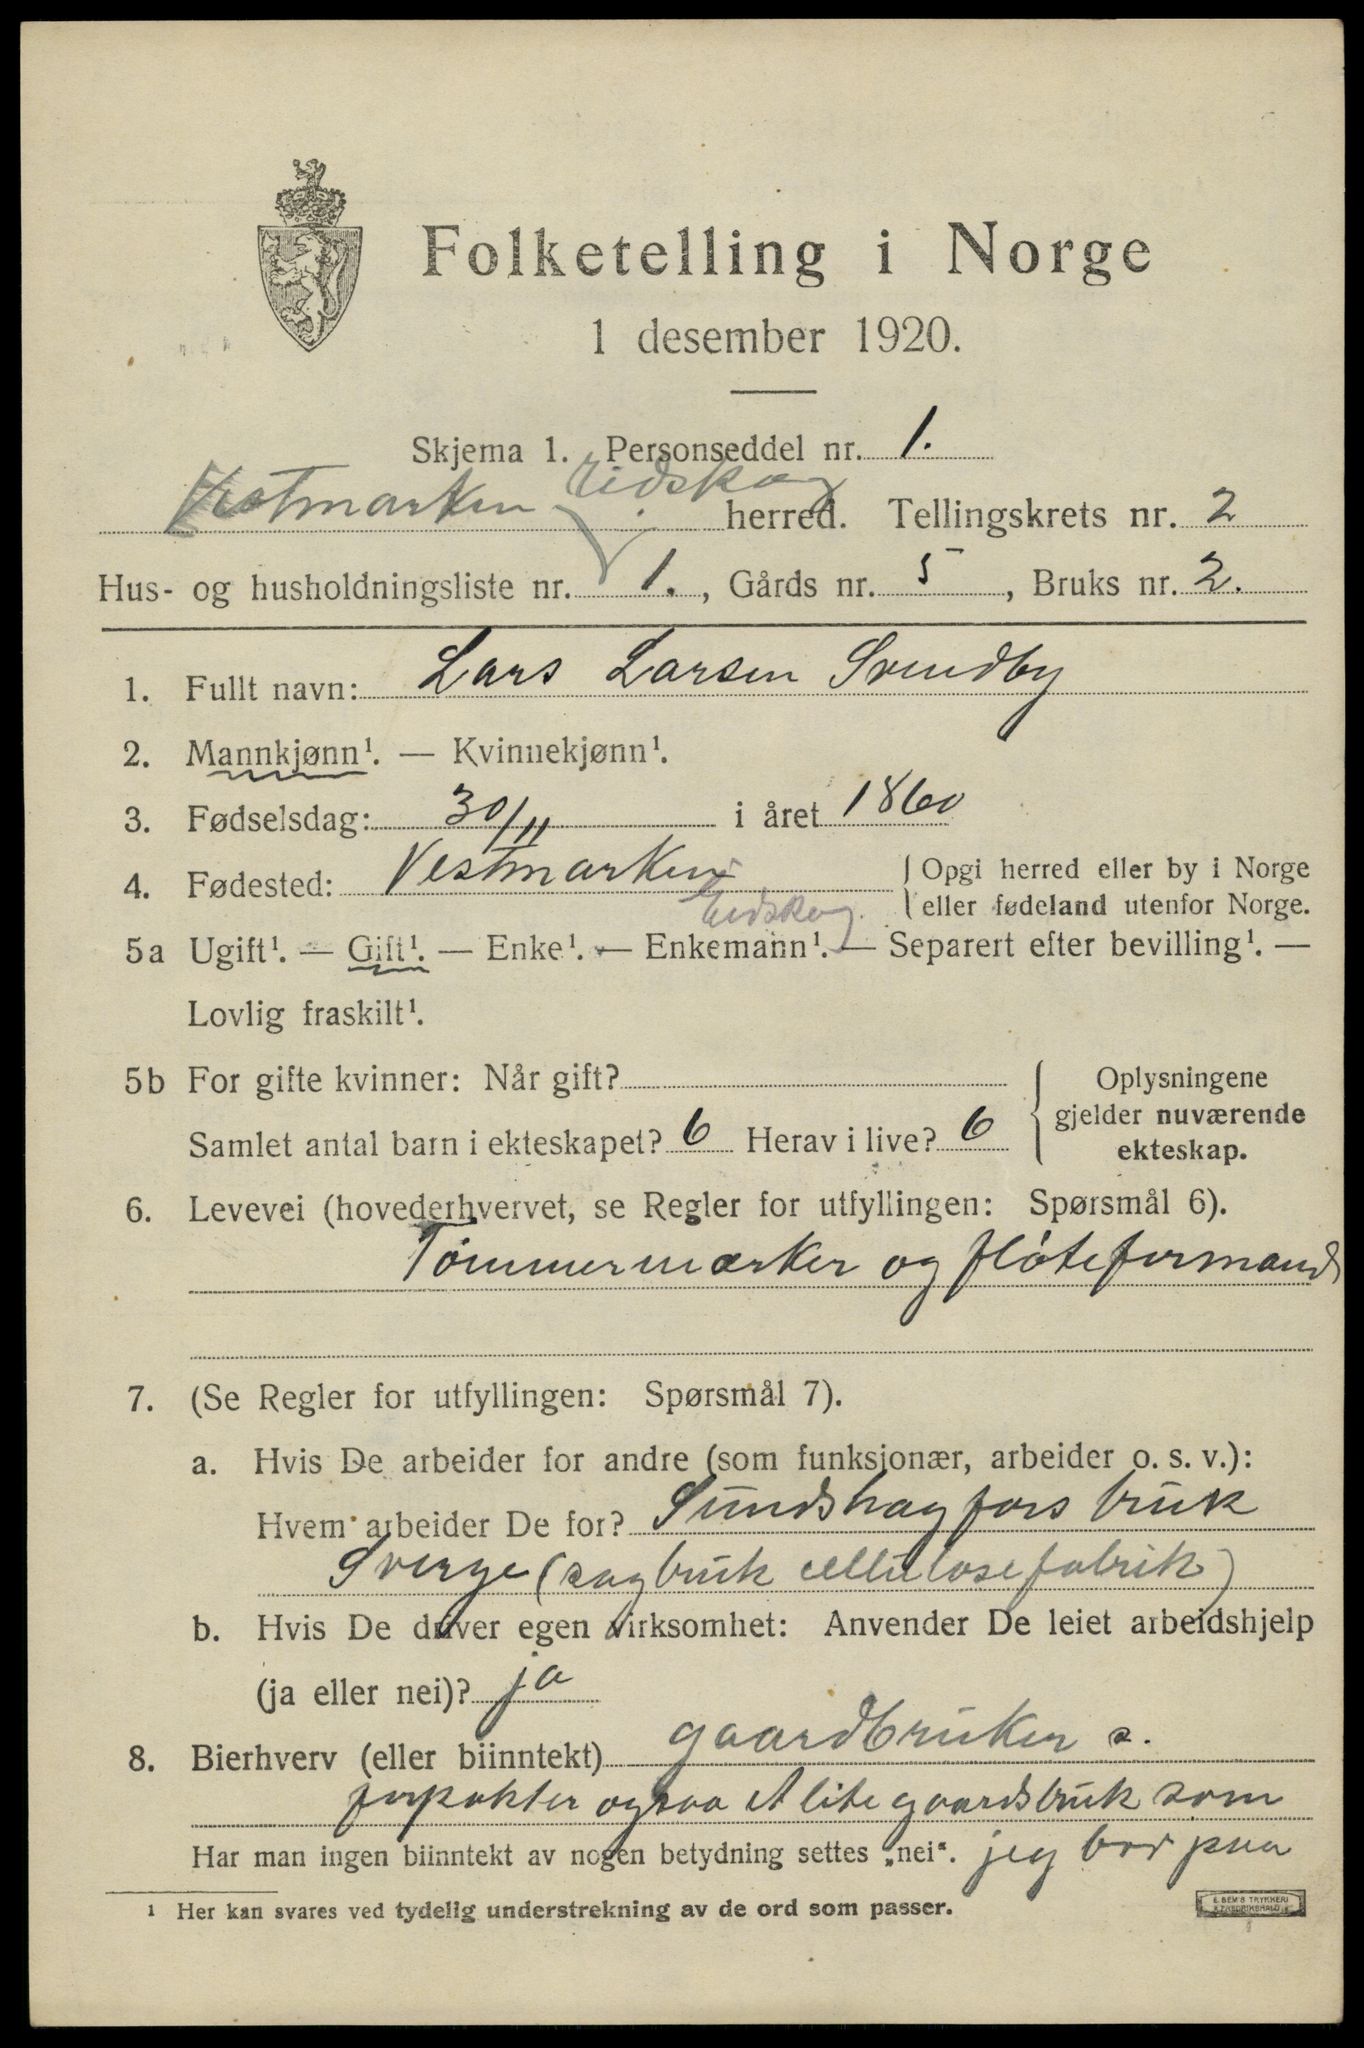 Folketelling i Norge
1 desember 1920.
Skjema 1. Personseddel nr. 1.
Vestmarken Eidskog herred. Tellingskrets nr. 2
Hus- og husholdningsliste nr. 1., Gårds nr. 5, Bruks nr. 2.
1. Fullt navn: Lars Larsen Svendby
2. Mannkjønn¹. — Kvinnekjønn¹.
3. Fødselsdag: 30/11 i året 1860
4. Fødested: Vestmarken { Opgi herred eller by i Norge
Eidskog. eller fødeland utenfor Norge.
5a Ugift¹. — Gift¹. — Enke¹. — Enkemann¹. — Separert efter bevilling¹. —
Lovlig fraskilt¹.
5b For gifte kvinner: Når gift? { Oplysningene
gjelder nuværende
Samlet antal barn i ekteskapet? 6 Herav i live? 6
ekteskap.
6. Levevei (hovederhvervet, se Regler for utfyllingen: Spørsmål 6).
Tömmermærker og flöteformand
7. (Se Regler for utfyllingen: Spørsmål 7).
a. Hvis De arbeider for andre (som funksjonær, arbeider o. s. v.):
Hvem arbeider De for? Sundshagfors bruk
Sverge (sagbruk cellulosefabrik)
b. Hvis De driver egen virksomhet: Anvender De leiet arbeidshjelp
(ja eller nei)? ja
8. Bierhverv (eller biinntekt) gaardbruker s.
forpakter ogsaa et lite gaardsbruk som
Har man ingen biinntekt av nogen betydning settes „nei“. jeg bor paa
¹ Her kan svares ved tydelig understrekning av de ord som passer.
E. SEM'S TRYKKERI
FREDRIKSHALD